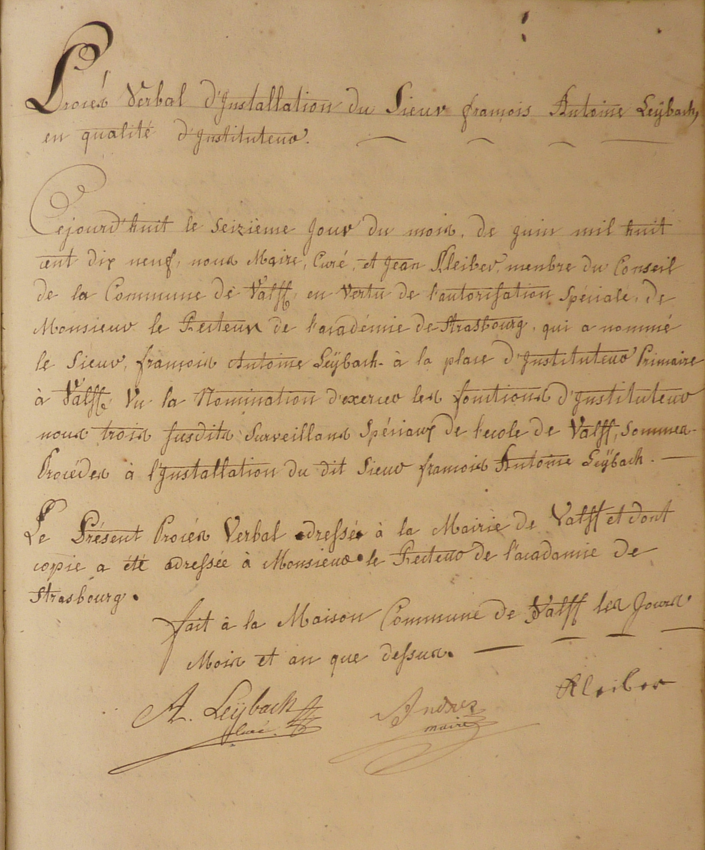 Procés Verbal d'Installation du Sieur françois Antoine Leÿbach,
en qualité d'Instituteur.
Cejourd'huit le seizieme Jour du mois, de guin mil huit
cent dix neuf, nous Maire, Curé, et Jean Kleiber, menbre du Conseil
de la Commune de Valff, en Vertu de l'autorisation Spéciale, de
Monsieur le Recteur de l'académie de Strasbourg, qui a nommé
le Sieur, françois Antoine Leÿbach à la place d'Instituteur Primaire
à Valff, Vu la Nomination d'exercer les fonctions d'Instituteur
nous trois susdits Surveillans Spéciaux de l'ecole de Valff, Sommes
Procédes à l'Installation du dit Sieur françois Antoine Leÿbach.
Le Présent Procés Verbal adressée à la Mairie de Valff et dont
copie a été adressée à Monsieur le Recteur de l'acadamie de
Strasbourg.
fait à la Maison Commune de Valff les Jours
Mois et an que dessus.
A. Leÿbach
Curé.
Andrez
maire
Kleiber